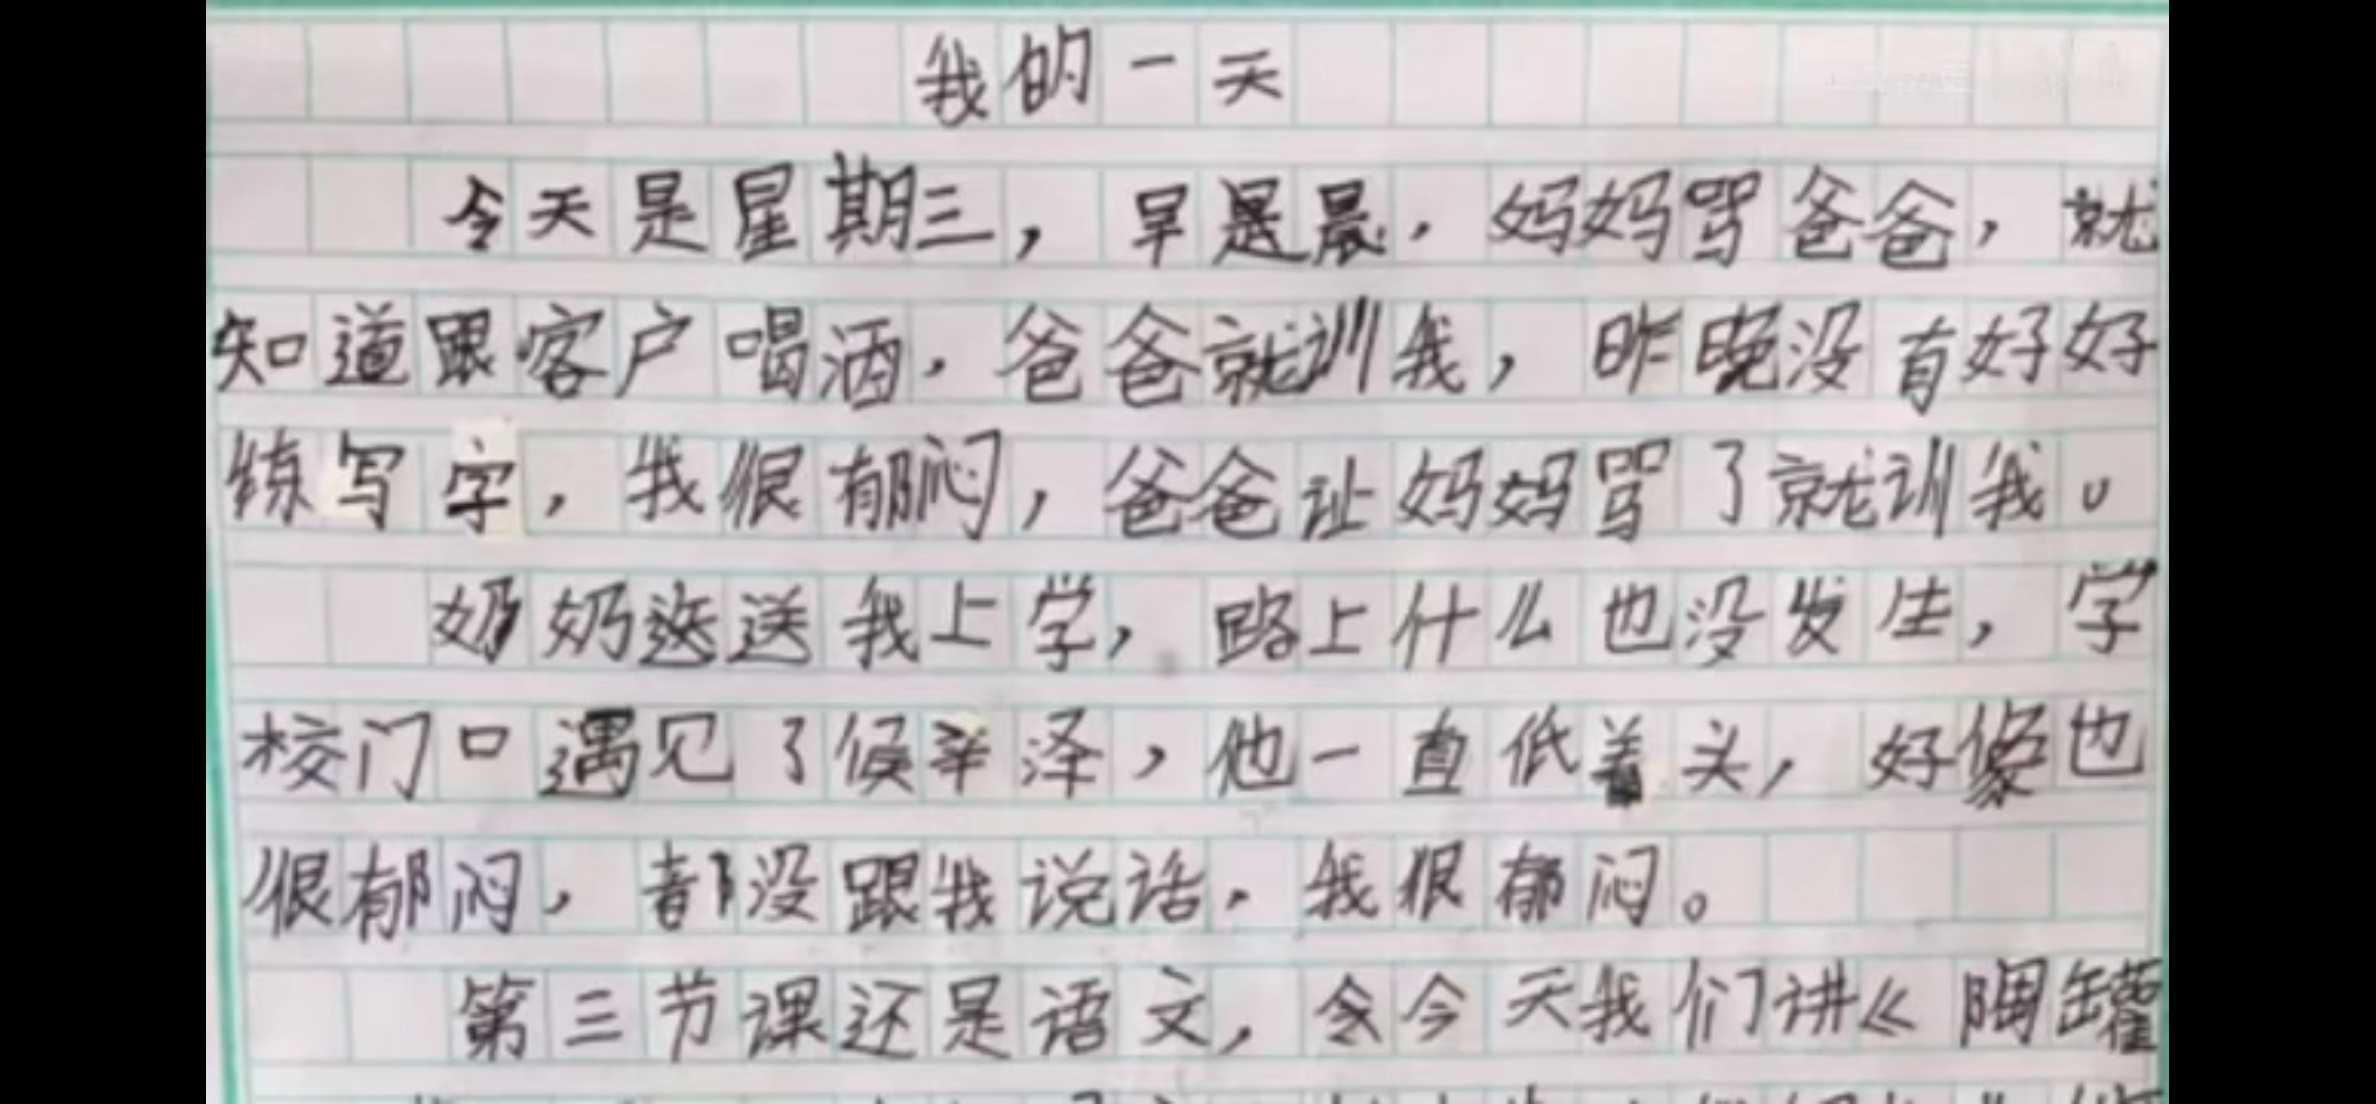 我的一天
今天是星期三，早是晨，妈妈骂爸爸，就
知道跟客户喝酒，爸爸就训我，昨晚没有好好
练写字，我很郁闷，爸爸让妈妈骂了就训我。
奶奶送送我上学，路上什么也没发生，学
校门口遇见了候泽，他一直低着头，好像也
很郁闷，都没跟我说话，我很郁闷。
第三节课还是语文，令今天我们讲《陶罐